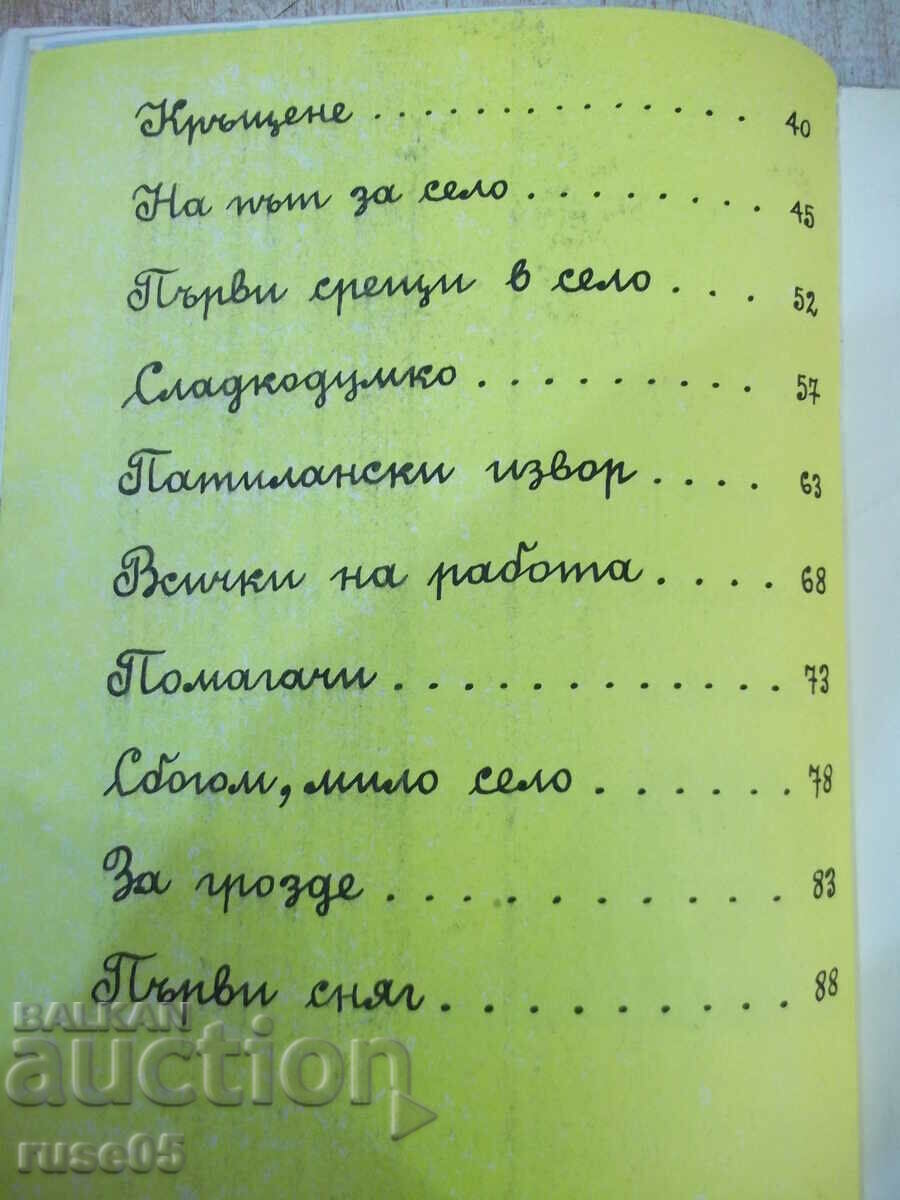 Кръщене . . . . . . . . . . . . . 40
На път за село . . . . . . . 45
Първи срещи в село . . . 52
Сладкодумко . . . . . . . . . 57
Патилански извор . . . . 63
Всички на работа . . . . 68
Помагачи . . . . . . . . . . . 73
Сбогом, мило село . . . . . . 78
За грозде . . . . . . . . . . 83
Първи сняг . . . . . . . . . 88
BALKAN
auction
ruse05